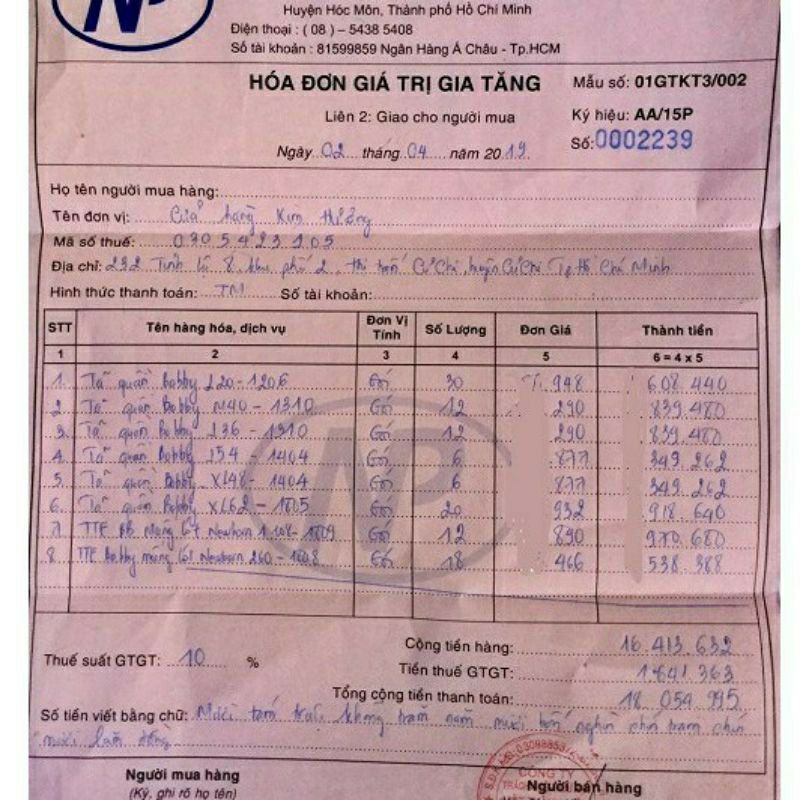 NP
Huyện Hóc Môn, Thành phố Hồ Chí Minh
Điện thoại : ( 08 ) – 5438 5408
Số tài khoản : 81599859 Ngân Hàng Á Châu - Tp.HCM
HÓA ĐƠN GIÁ TRỊ GIA TĂNG
Mẫu số: 01GTKT3/002
Liên 2: Giao cho người mua
Ký hiệu: AA/15P
Ngày 02 tháng 04 năm 2019
Số: 0002239
Họ tên người mua hàng:
Tên đơn vị: Cửa hàng Kim
Mã số thuế: 0305423105
Địa chỉ: 232 Tỉnh lộ 8 khu phố 2, thị trấn Củ Chi, huyện Củ Chi Tp Hồ Chí Minh
Hình thức thanh toán: TM Số tài khoản:
STT Tên hàng hóa, dịch vụ Đơn Vị Tính Số Lượng Đơn Giá Thành tiền
1 2 3 4 5 6 = 4 x 5
1. Tã quần Bobby L20-1206 Gói 30 948 608.440
2 Tã quần Bobby M40-1310 Gói 12 290 839.480
3. Tã quần Bobby L36-1310 Gói 12 290 839.480
4 Tã quần Bobby L54-1404 Gói 6 877 349.262
5 Tã quần Bobby XL48-1404 Gói 6 877 349.262
6. Tã quần Bobby XL62-1805 Gói 20 932 918.640
7 TTE BB Mỏng Newborn Gói 12 890 970.680
8 TTE Bobby mỏng Newborn 260-1808 Gói 18 466 538.388
Cộng tiền hàng: 16.413.632
Thuế suất GTGT: 10 % Tiền thuế GTGT: 1641.363
Tổng cộng tiền thanh toán: 18.054.995
Số tiền viết bằng chữ: Mười tám triệu không trăm năm mươi bốn nghìn chín trăm chín
mươi lăm đồng
Người mua hàng
Người bán hàng
(Ký, ghi rõ họ tên)
CÔNG TY